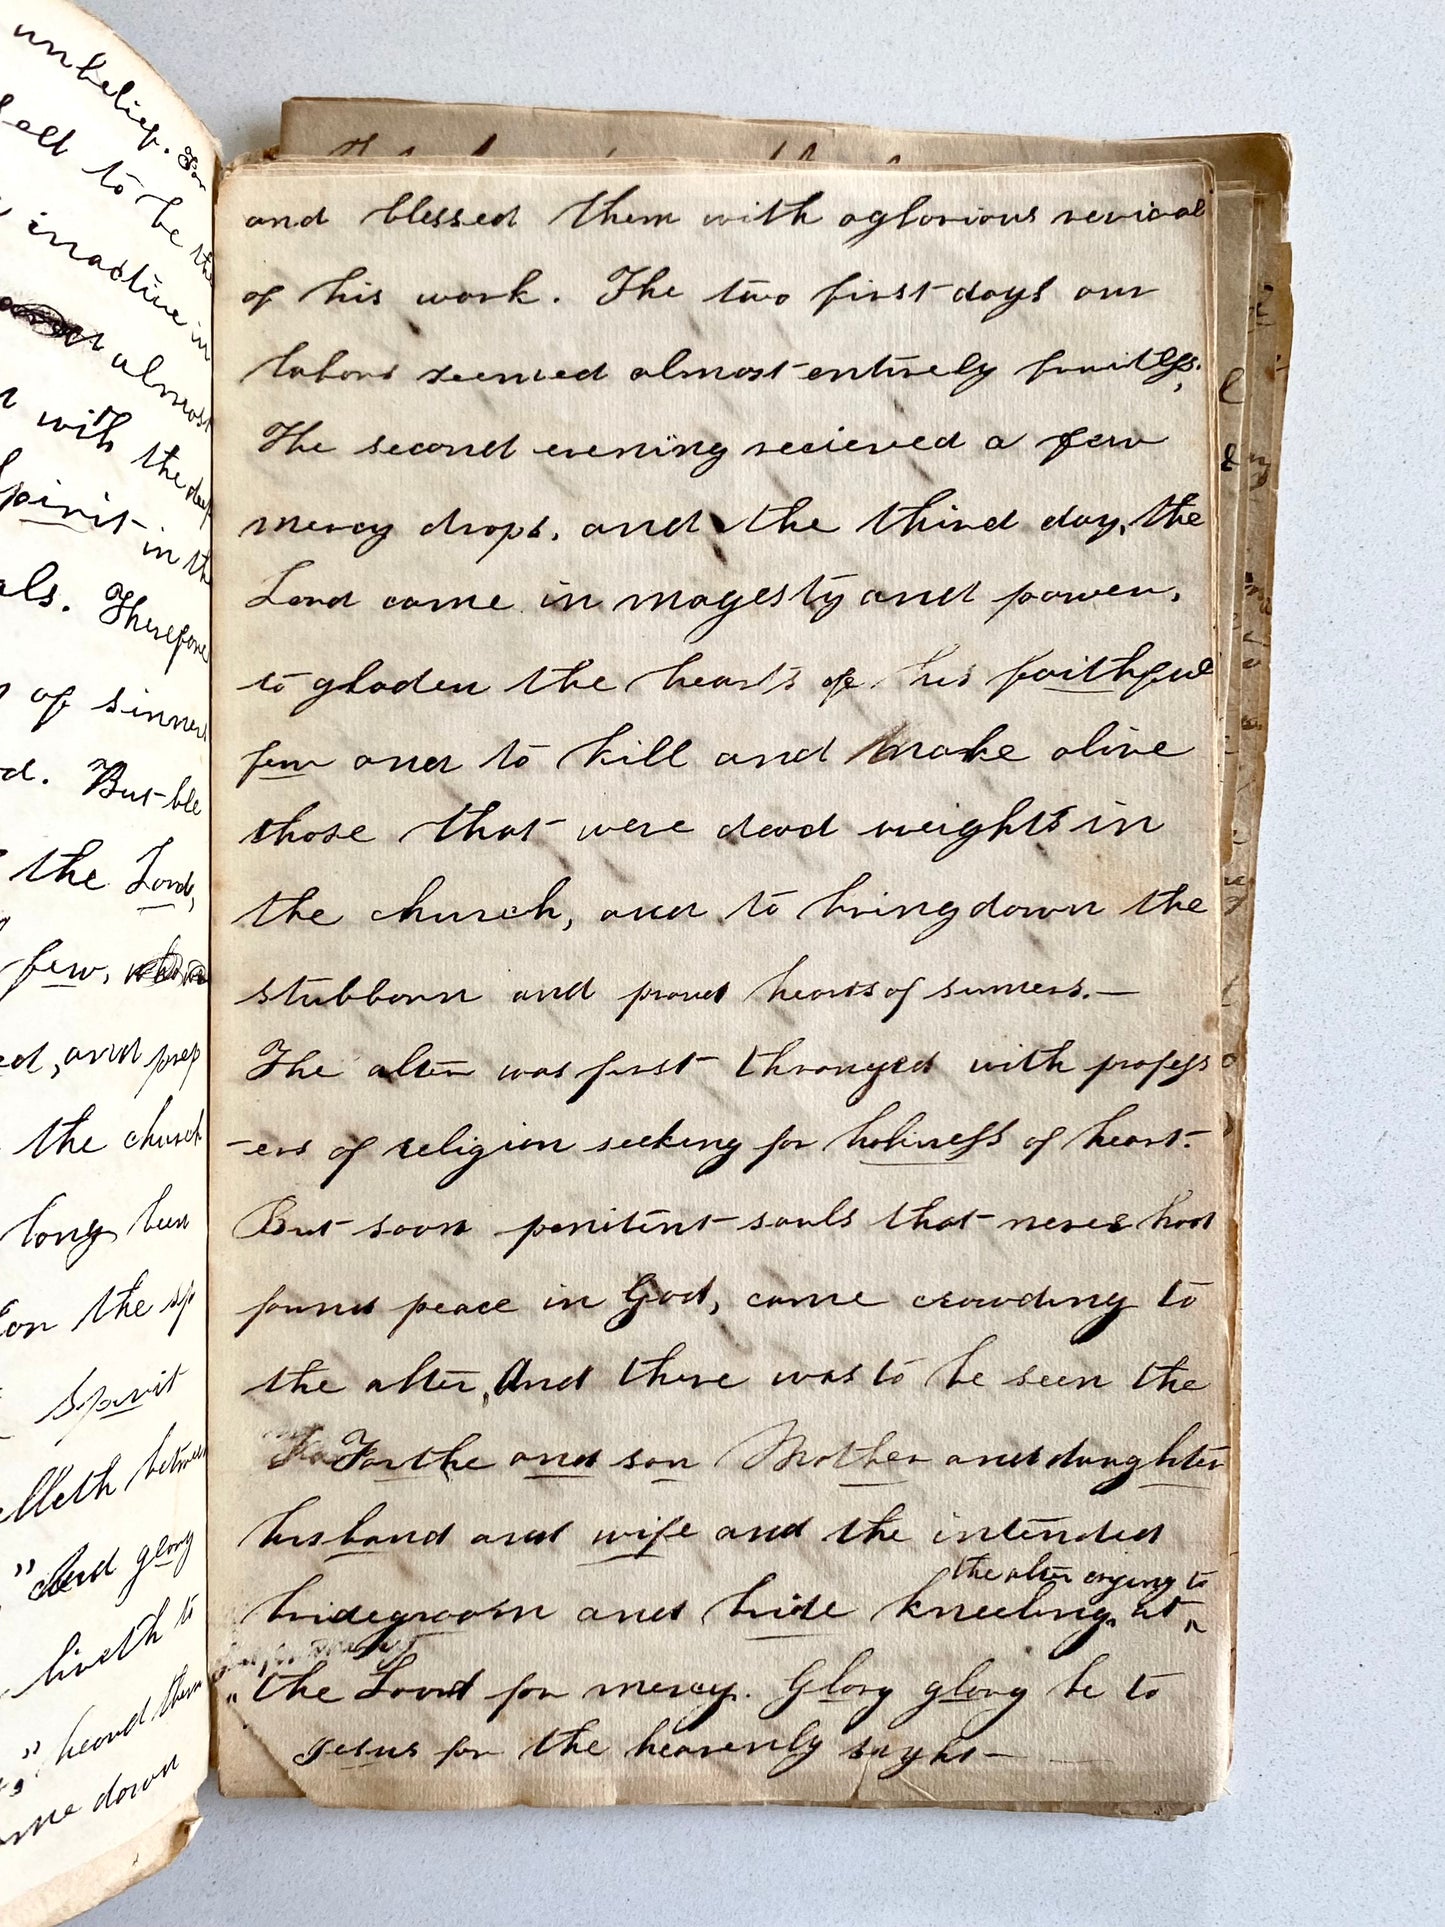 unbelief. For
to be the
inactive in
almost
with the deep
Spirit in the
als. Therefore
of sinners
d. But ble
the Lord,
few,
ed, and prep
the church
long been
on the sp
Spirit
elleth between
" and glory
liveth to
" heard them
me down
and blessed them with a glorious revival
of his work. The two first days our
labors seemed almost entirely fruitless.
The second evening recieved a few
mercy drops, and the third day, the
Lord came in magesty and power,
to gladen the hearts of his faithful
few and to kill and make alive
those that were dead weights in
the church, and to bring down the
stubborn and proud hearts of sinners.—
The alter was first thronged with profess
-ers of religion seeking for holiness of heart.
But soon penitent souls that never had
found peace in God, came crowding to
the alter, And there was to be seen the
Farthe and son Mother and daughter
husband and wife and the intended
the alter crying to
bridegroom and bride kneeling at
"the Lord for mercy. Glory glory be to
Jesus for the heavenly syght—